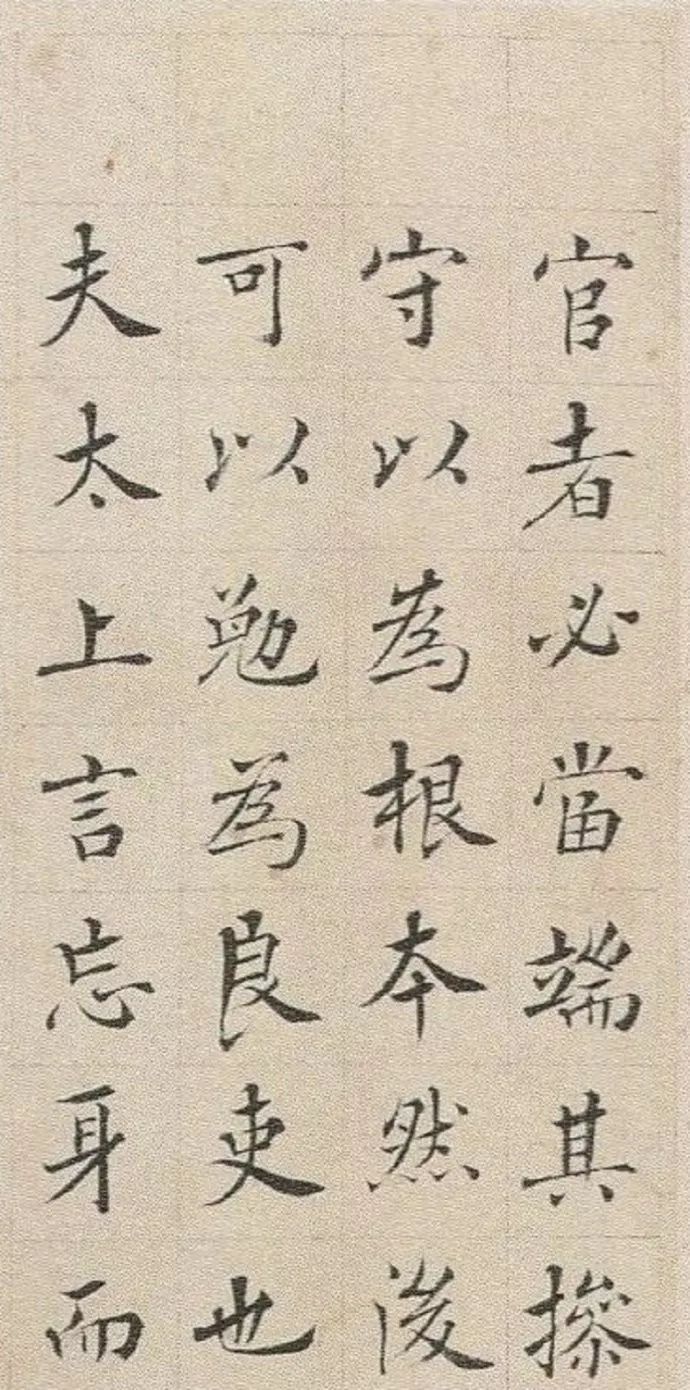 官者必當端其摻
守以為根本然後
可以勉為良吏也
夫太上言忘身而